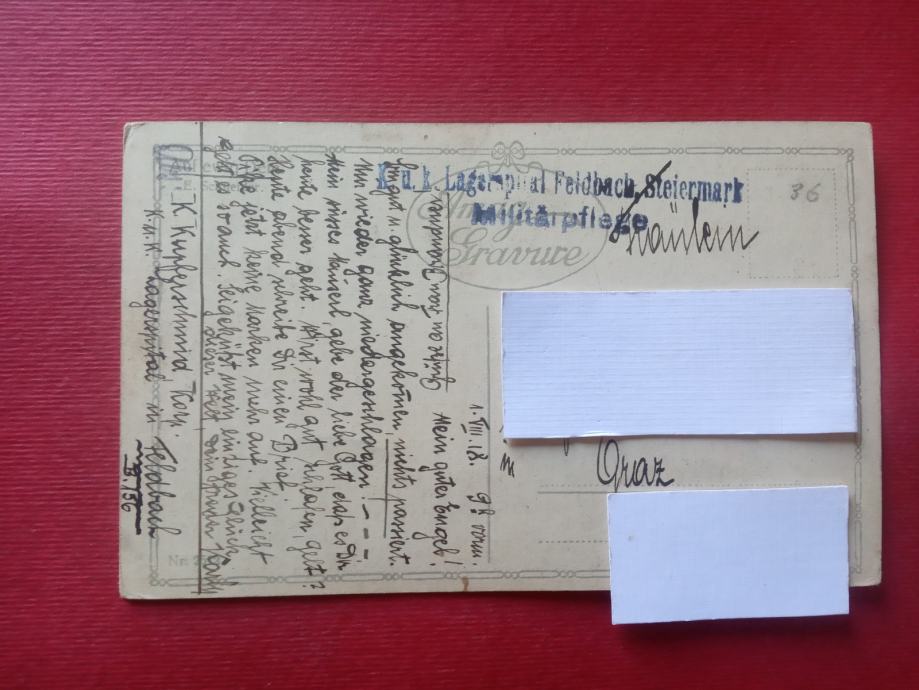 K. u. k. Lagerspital Feldbach, Steiermark
Militärpflege
36
Fräulein
Gravure
Graz
1. VIII. 18. 9h vorm.
Mein guter Engel!
u. glücklich angekom̄en nichts passiert.
Nur wieder ganz niedergeschlagen! - - -
Mein süsses gebe der liebe Gott, dass es Dir
heute besser geht. Wirst wohl gut schlafen, gelt?
Heute abend schreibe Dir einen Brief.
Gebe jetzt keine Karten mehr auf. Vielleicht
geht es so auch. Sei geküßt mein einziges Glück
dieser Welt Dein Karl
K. Kupferschmid, Korp.
K. u. k. Lagerspital in Feldbach
B. 156
Nr.